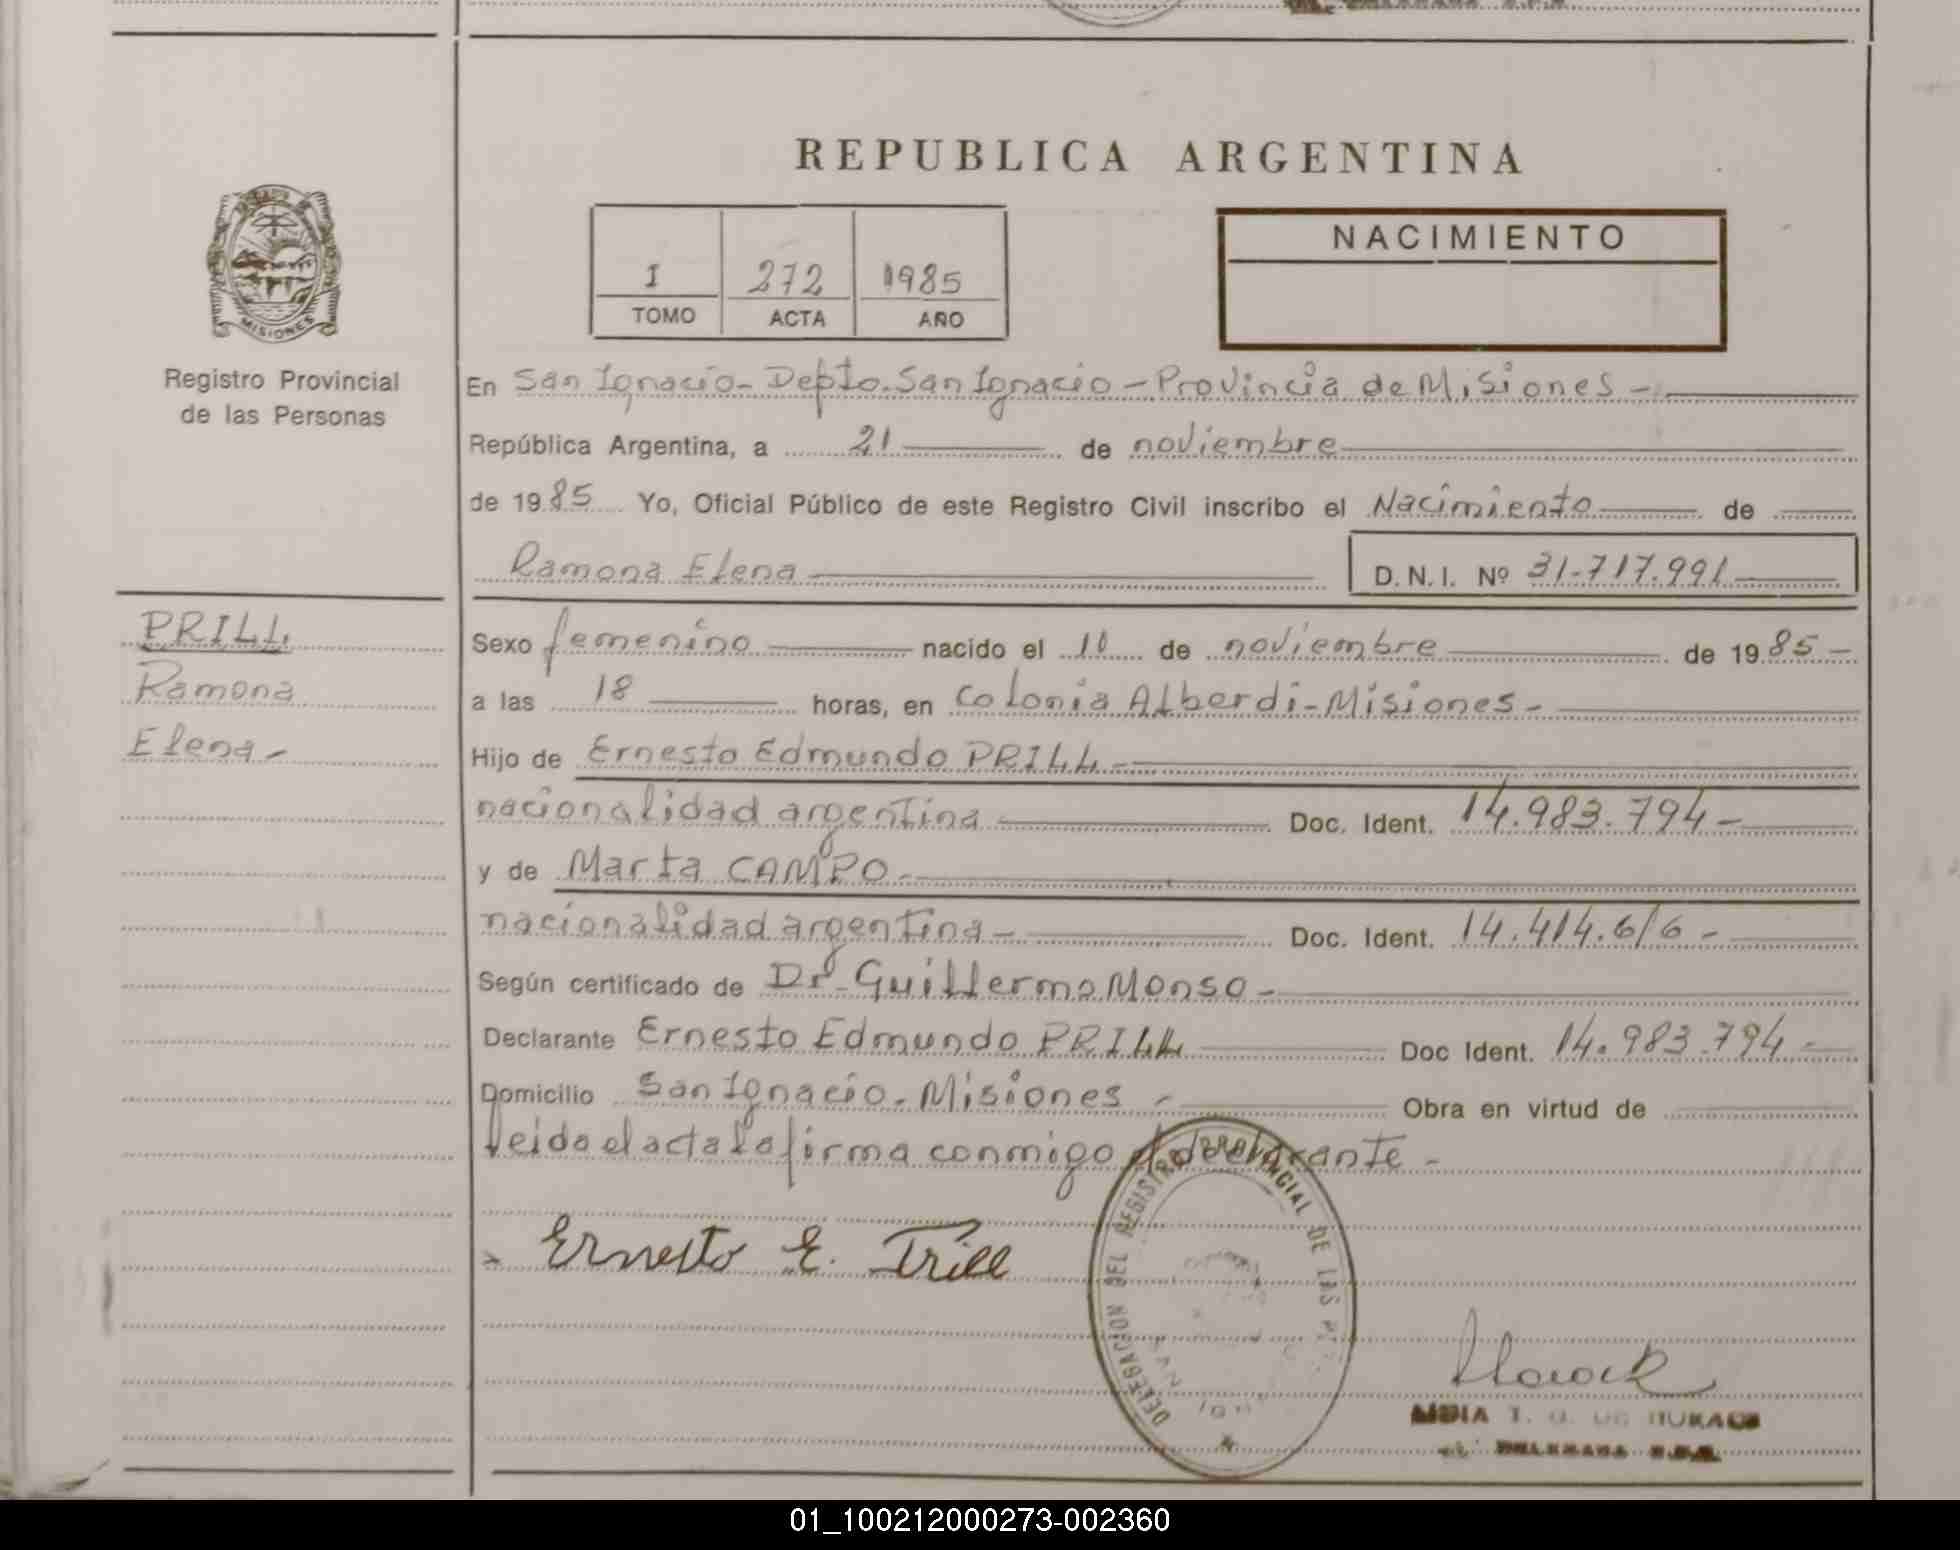 REPUBLICA ARGENTINA
NACIMIENTO
I 272 1985
TOMO ACTA AÑO
MISIONES
Registro Provincial
de las Personas
En San Ignacio - Depto. San Ignacio - Provincia de Misiones -
República Argentina, a 21 de noviembre
de 1985 Yo, Oficial Público de este Registro Civil inscribo el Nacimiento de
Ramona Elena D.N.I. Nº 31-717.991
PRILL
Ramona
Elena -
Sexo femenino nacido el 10 de noviembre de 1985 -
a las 18 horas, en Colonia Alberdi - Misiones -
Hijo de Ernesto Edmundo PRILL -
nacionalidad argentina Doc. Ident. 14.983.794 -
y de Marta CAMPO -
nacionalidad argentina - Doc. Ident. 14.414.616 -
Según certificado de Dr. Guillermo Monso -
Declarante Ernesto Edmundo PRILL Doc Ident. 14.983.794 -
Domicilio San Ignacio - Misiones - Obra en virtud de
leido el acta la firma conmigo el declarante -
Ernesto E. Prill
DELEGACION DEL REGISTRO PROVINCIAL DE LAS
SAN
01_100212000273-002360